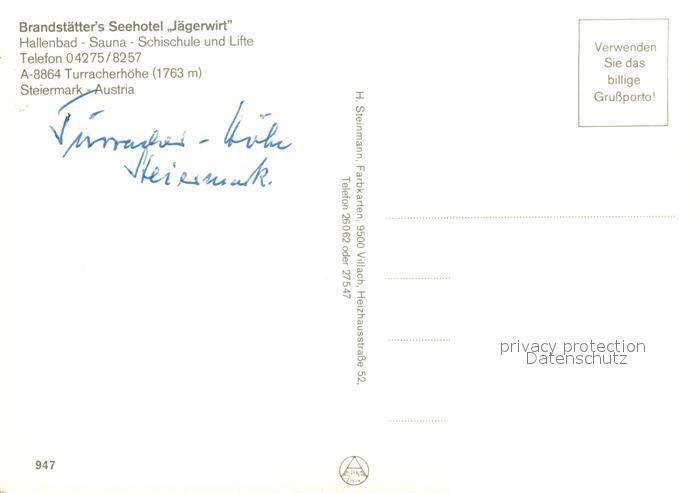 Brandstätter's Seehotel „Jägerwirt"
Hallenbad - Sauna - Schischule und Lifte
Telefon 04275/8257
A-8864 Turracherhöhe (1763 m)
Steiermark - Austria
Turracher - Höhe
Steiermark.
H. Steinmann, Farbkarten, 9500 Villach, Heizhausstraße 52,
Telefon 26062 oder 27547
Verwenden
Sie das
billige
Grußporto!
privacy protection
Datenschutz
947